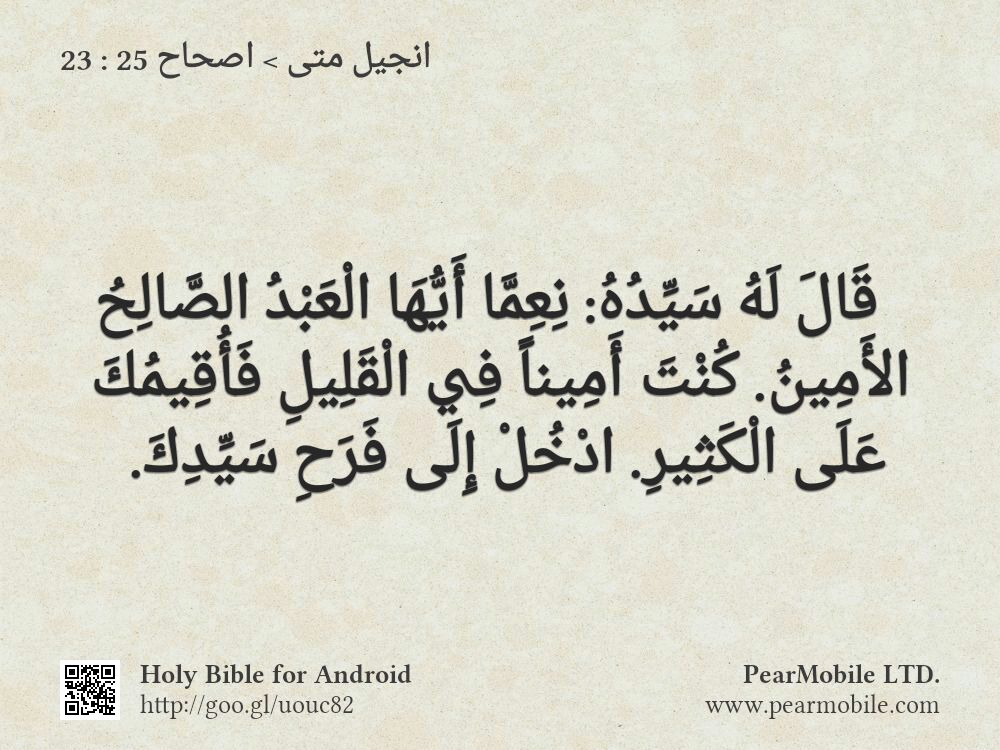 انجيل متى > اصحاح 25 : 23
قَالَ لَهُ سَيِّدُهُ: نِعِمَّا أَيُّهَا الْعَبْدُ الصَّالِحُ
الأَمِينُ. كُنْتَ أَمِيناً فِي الْقَلِيلِ فَأُقِيمُكَ
عَلَى الْكَثِيرِ. ادْخُلْ إِلَى فَرَحِ سَيِّدِكَ.
Holy Bible for Android
http://goo.gl/uouc82
PearMobile LTD.
www.pearmobile.com